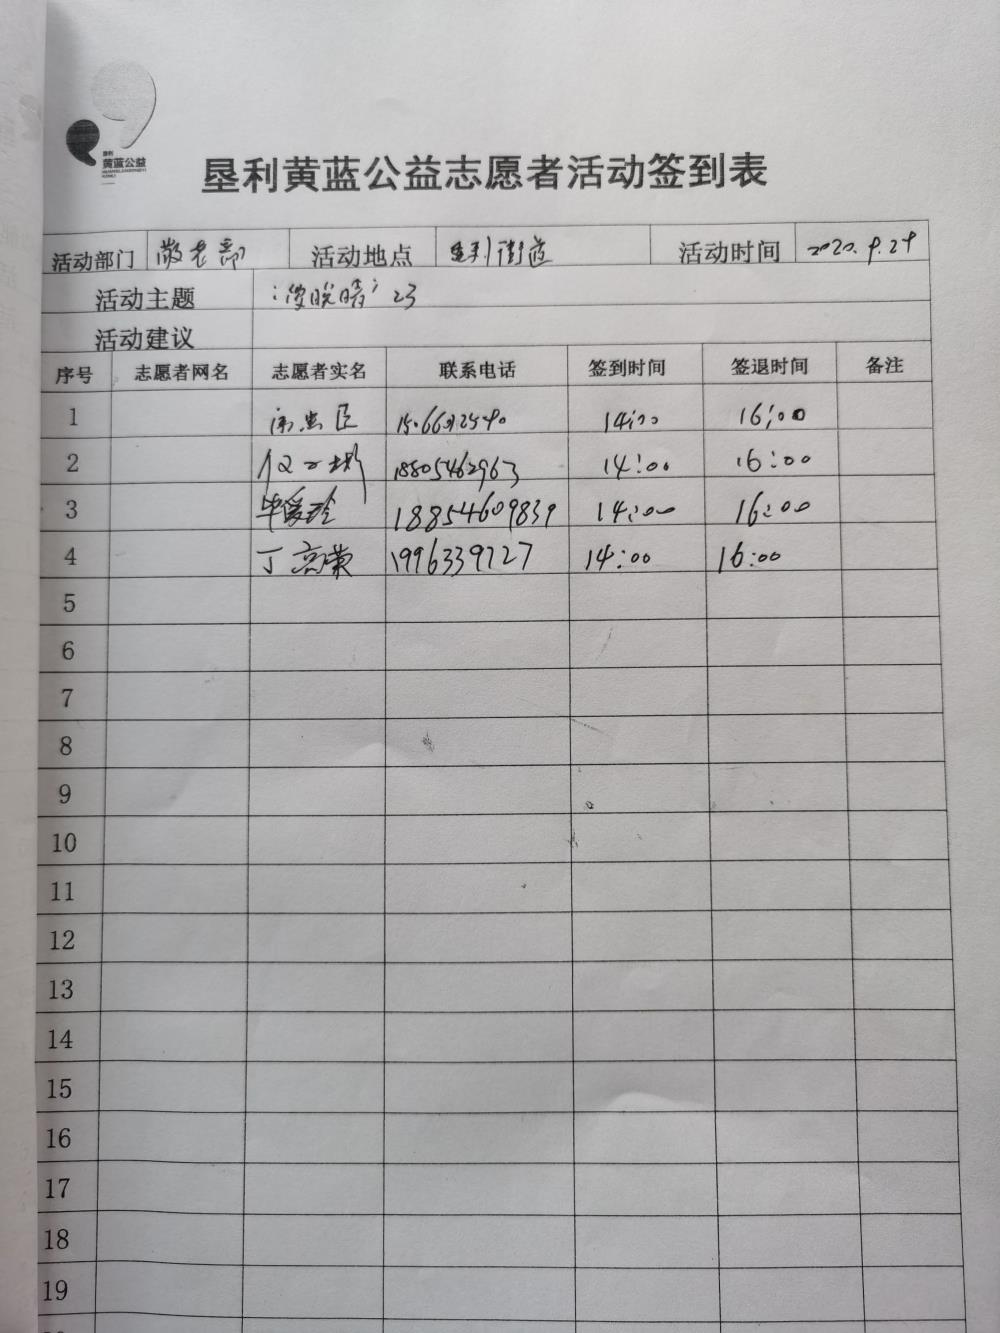 垦利
黄蓝公益
垦利黄蓝公益志愿者活动签到表
活动部门 敬老部 活动地点 垦利街道 活动时间 2020.9.29
活动主题
活动建议
序号 志愿者网名 志愿者实名 联系电话 签到时间 签退时间 备注
1 14:00 16:00
2 18805462963 14:00 16:00
3 毕爱玲 18854609839 14:00 16:00
4 丁高荣 1996339727 14:00 16:00
5
6
7
8
9
10
11
12
13
14
15
16
17
18
19